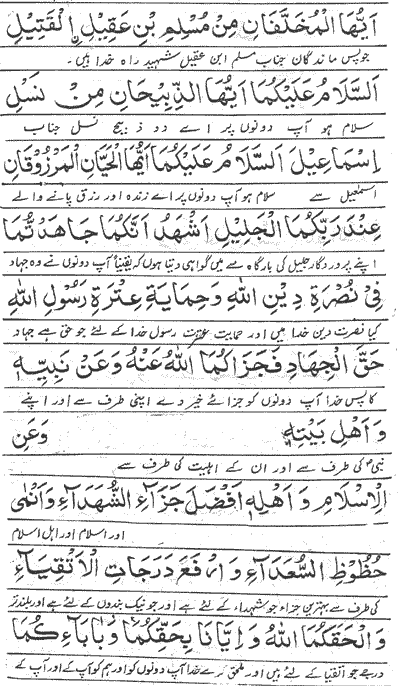 اَيُّهَا الْمُخَلَّفَانِ مِنْ مُسْلِمِ بْنِ عَقِيْلِ الْقَتِيْلِ
جو پس ماندگان جناب مسلم ابن عقیل شہید راہ خدا ہیں۔
اَلسَّلَامُ عَلَيْكُمَا اَيُّهَا الذَّبِيْحَانِ مِنْ نَسْلِ
سلام ہو آپ دونوں پر اے دو ذبیح نسل جناب
اِسْمَاعِيْلَ اَلسَّلَامُ عَلَيْكُمَا اَيُّهَا الْحَيَّانِ الْمَرْزُوْقَانِ
اسمعیل سے سلام ہو آپ دونوں پر اے زندہ اور رزق پانے والے
عِنْدَ رَبِّكُمَا الْجَلِيْلِ اَشْهَدُ اَنَّكُمَا جَاهَدْتُمَا
اپنے پروردگار جلیل کی بارگاہ سے میں گواہی دیتا ہوں کہ یقیناً آپ دونوں نے وہ جہاد
فِيْ نُصْرَةِ دِيْنِ اللّٰهِ وَحِمَايَةِ عِتْرَةِ رَسُوْلِ اللّٰهِ
کیا نصرت دین خدا میں اور حمایت عترت رسول خدا کے لئے جو حق ہے جہاد
حَقَّ الْجِهَادِ فَجَزَاكُمَا اللّٰهُ عَنْهُ وَعَنْ نَبِيِّهٖ
کا پس خدا آپ دونوں کو جزائے خیر دے اپنی طرف سے اور اپنے
وَاَهْلِ بَيْتِهٖ وَعَنِ
نبیؐ کی طرف سے اور ان کے اہلبیت کی طرف سے
الْاِسْلَامِ وَاَهْلِهٖ اَفْضَلَ جَزَاءِ الشُّهَدَاءِ وَاَنْمٰى
اور اسلام اور اہل اسلام
حُظُوْظِ السُّعَدَاءِ وَارْفَعَ دَرَجَاتِ الْاَتْقِيَاءِ
کی طرف سے بہترین جزاء جو شہداء کے لئے ہے اور جو نیک بندوں کے لئے ہے اور بلند تر
وَاَلْحَقَكُمَا اللّٰهُ وَاِيَّانَا بِحَقِّكُمَا بِاٰبَاءِكُمَا
درجے جو اتقیا کے لئے ہیں اور ملحق کرے خدا آپ دونوں کو اور ہم کو آپ کے اور آپ کے